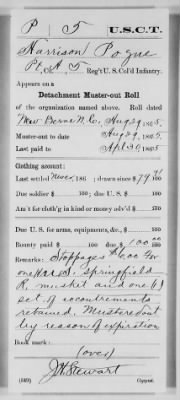 P. 5 U.S.C.T.
Harrison Pogue
Pt. A 5 Reg't U. S. Col'd Infantry.
Appears on a
Detachment Muster-out Roll
of the organization named above. Roll dated
New Berne N. C., Aug 29, 1865.
Muster-out to date Aug 29, 1865.
Last paid to Apl 30, 1865
Clothing account:
Last settled Never, 186 ; drawn since $ 79 76/100
Due soldier $ 100; due U. S. $ 100
Am't for cloth'g in kind or money adv'd $ 100
Due U. S. for arms, equipments, &c., $ 100
Bounty paid $ 100; due $ 100 00/100
Remarks: Stoppages $6.00 for
one springfield
R. musket and one (1)
set of accoutrements
retained. Mustered out
by reason of expiration
Book mark:
(over)
J H Stewart
(369) Copyist.